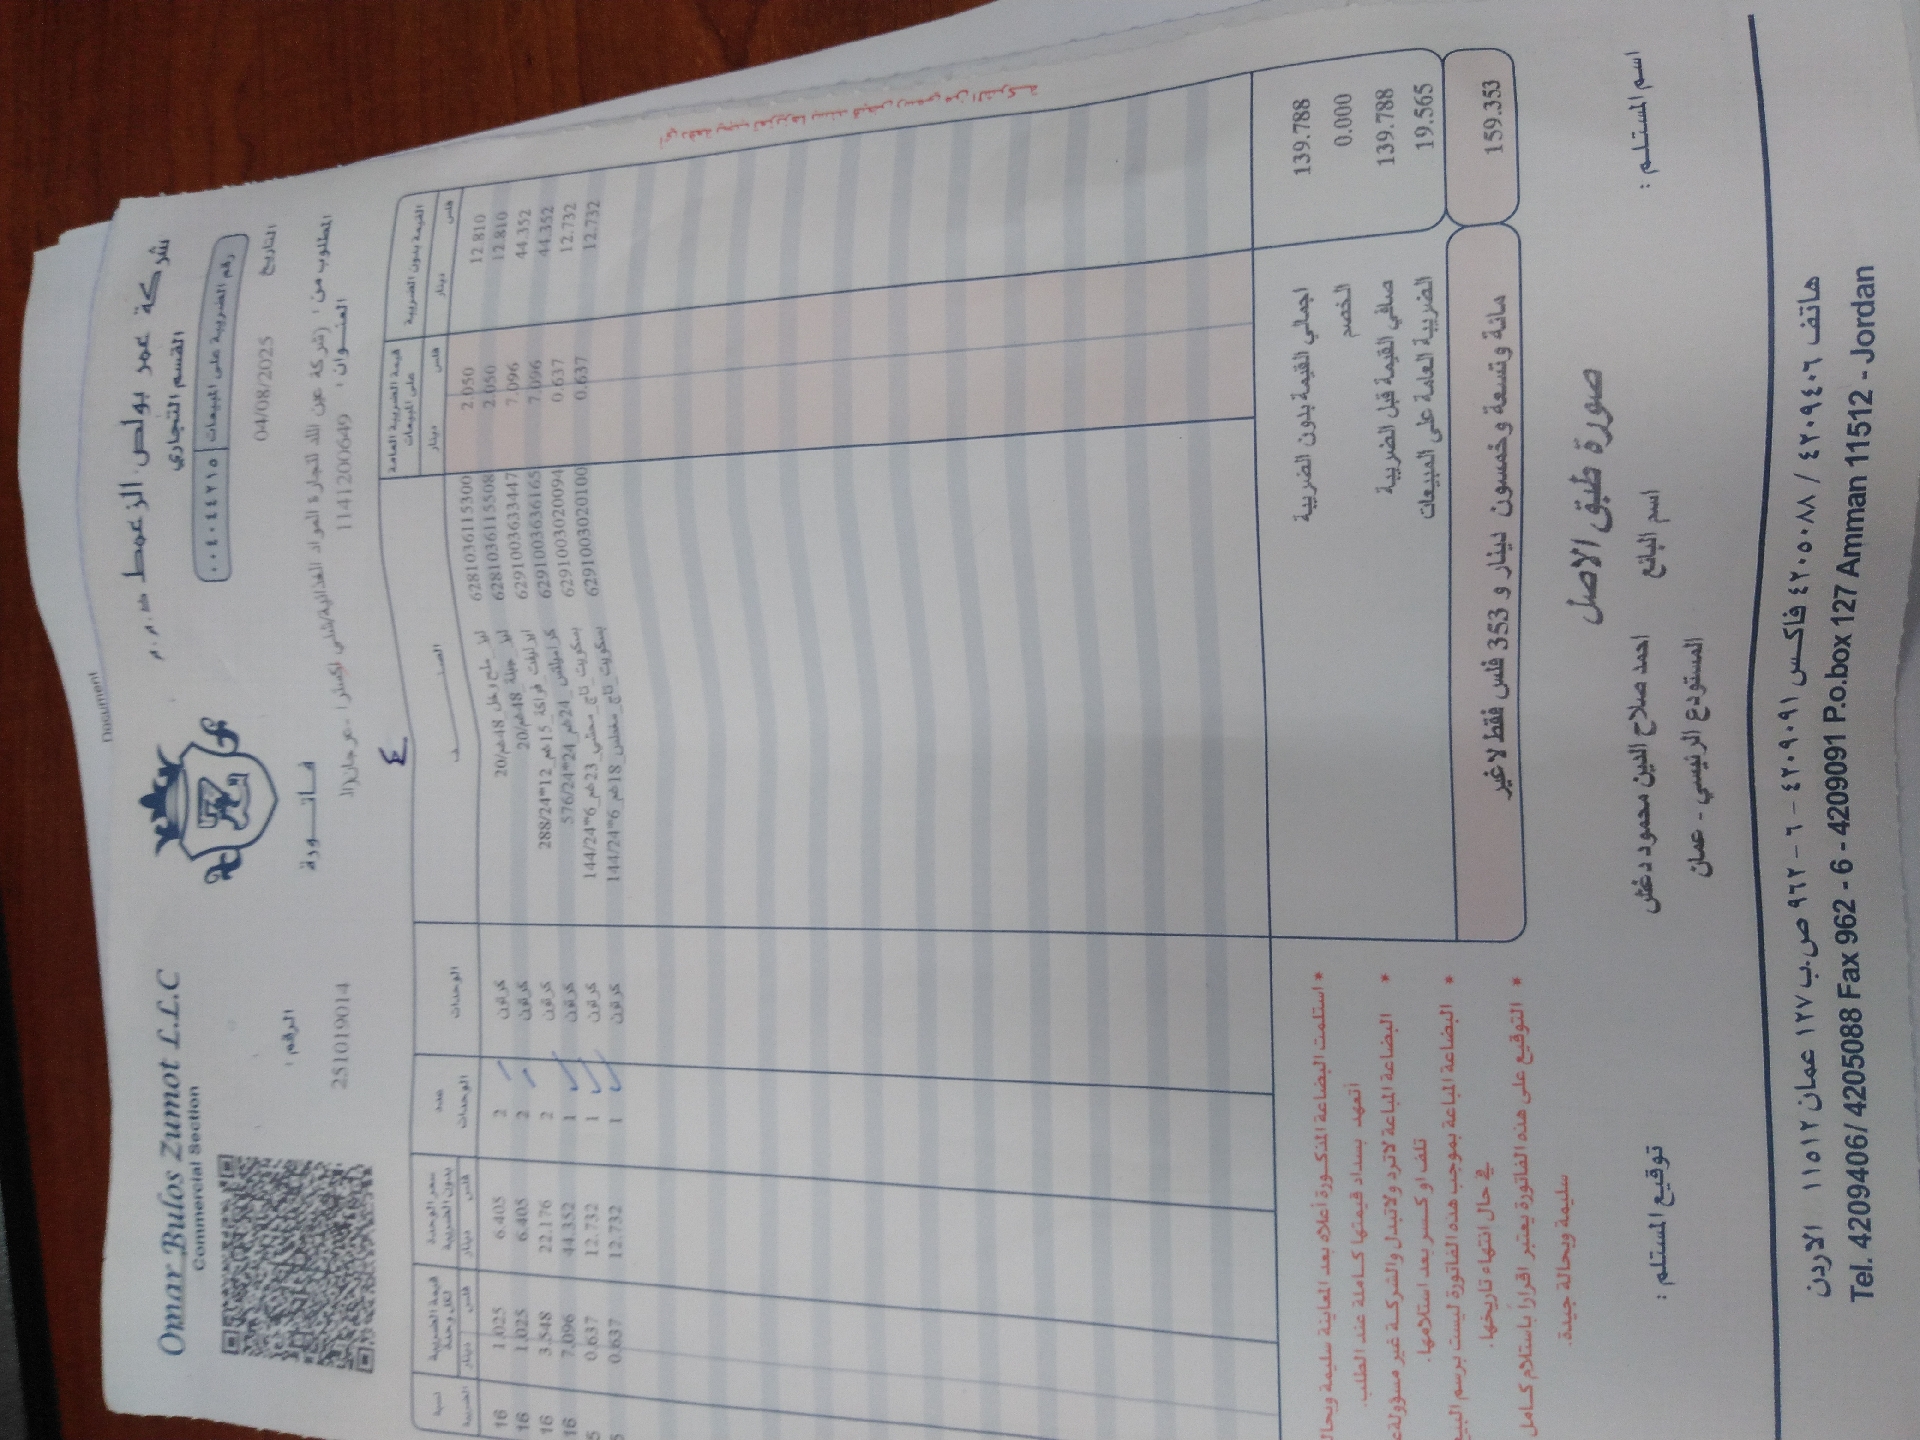 Document
Omar Bulos Zumot L.L.C
Commercial Section
شركة عمر بولص الزعمط ذ.م.م
القسم التجاري
رقم الضريبة على المبيعات
٠٠٤٠٤٤٢١٥
التاريخ
04/08/2025
فاتورة
الرقم :
251019014
المطلوب من :
العنوان :
1141200649
٤
نسبة الضريبة
قيمة الضريبة لكل وحدة
دينار فلس
سعر الوحدة بدون الضريبة
دينار فلس
عدد الوحدات
الوحدات
الصنف
قيمة الضريبة العامة على المبيعات
دينار فلس
القيمة بدون الضريبة
دينار فلس
16 1.025 6.405 2 كرتون 20/48غم 6281036115300 2.050 12.810
16 1.025 6.405 2 كرتون 20/48غم 6281036115508 2.050 12.810
16 3.548 22.176 2 كرتون 288/24*12_15غم 6291003633447 7.096 44.352
16 7.096 44.352 1 كرتون 576/24*24_24غم 6291003636165 7.096 44.352
0.637 12.732 1 كرتون بسكويت_تاج_محشي_23غم_6*144/24 6291003020094 0.637 12.732
0.637 12.732 1 كرتون بسكويت_تاج_مغطس_18غم_6*144/24 6291003020100 0.637 12.732
اجمالي القيمة بدون الضريبة 139.788
الخصم 0.000
صافي القيمة قبل الضريبة 139.788
الضريبة العامة على المبيعات 19.565
مائة وتسعة وخمسون دينار و 353 فلس فقط لاغير 159.353
* استلمت البضاعة المذكورة أعلاه بعد المعاينة سليمة وبحالة
أتعهد بسداد قيمتها كاملة عند الطلب.
* البضاعة المباعة لاترد ولاتبدل والشركة غير مسؤولة
تلف او كسر بعد استلامها.
* البضاعة المباعة بموجب هذه الفاتورة ليست برسم البيع
في حال انتهاء تاريخها.
* التوقيع على هذه الفاتورة يعتبر اقراراً باستلام كامل
سليمة وبحالة جيدة.
صورة طبق الاصل
اسم المستلم :
اسم البائع
احمد صلاح الدين محمود دغش
المستودع الرئيسي - عمان
توقيع المستلم :
هاتف ٤٢٠٩٤٠٦ / ٤٢٠٥٠٨٨ فاكس ٤٢٠٩٠٩١ - ٦ - ٩٦٢ ص.ب ١٢٧ عمان ١١٥١٢ الاردن
Tel. 4209406/ 4205088 Fax 962 - 6 - 4209091 P.o.box 127 Amman 11512 - Jordan